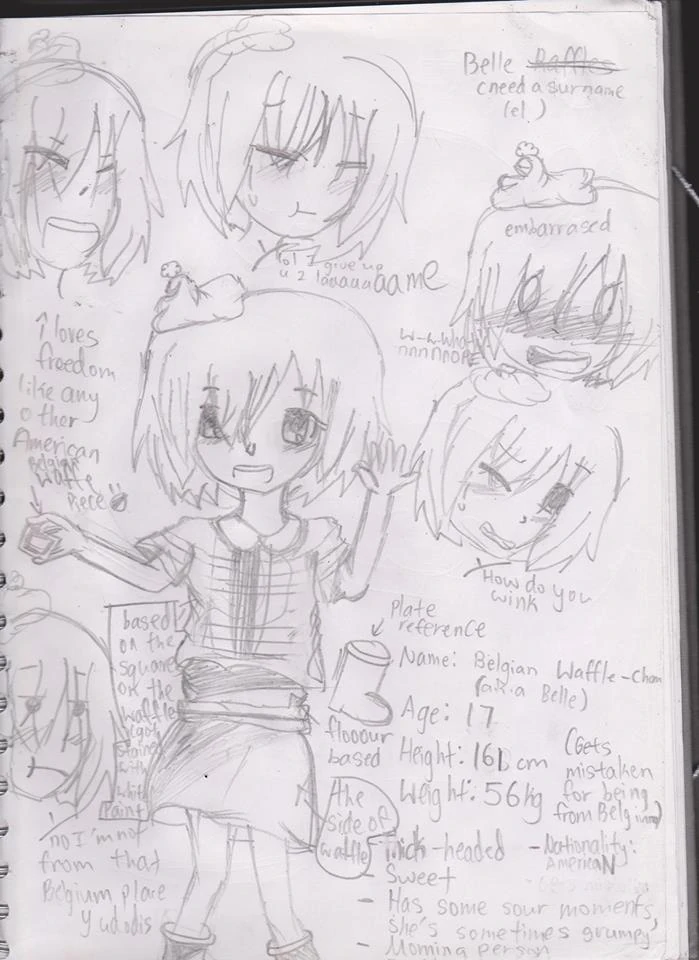 Belle Raffles
(need a surname
(el.)
embarrased
lol I give up
u 2 laaaauaaame
w-w-what
nnnnnope
↑ loves
freedom
like any
other
American
Belgian
waffle
piece
How do you
wink
Plate
reference
based
on the
square
on the
waffle
(got
stained
with
white
paint
flooour
based
the
side of
waffle
no I'm not
from that
Belgium place
y u do dis
Name: Belgian Waffle-Chan
(a.k.a Belle)
Age: 17
Height: 161 cm
Weight: 56kg
(Gets
mistaken
for being
from Belgium)
- Thick-headed
- Nationality:
AmericaN
- Sweet
- Has some sour moments,
she's sometimes grumpy
- Morning person